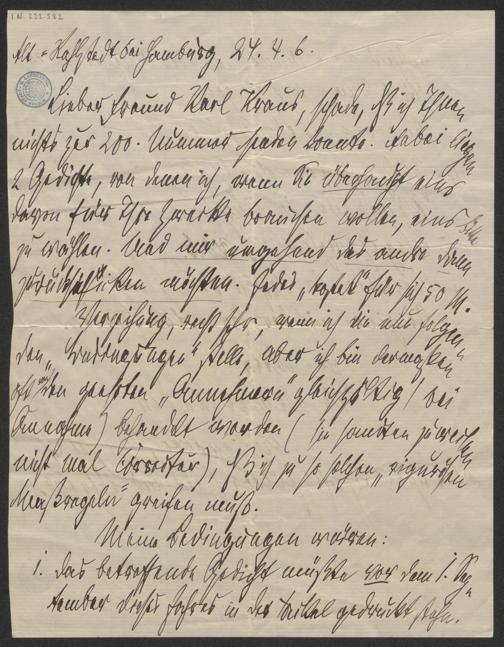 I.N. 
Alt-Rahlstedt bei Hamburg, 24. 4. 6.
Lieber Freund Karl Kraus, schade, daß ich Ihnen
nichts zur 200. Nummer senden konnte. Anbei liegen
2 Gedichte, von denen ich, wenn Sie überhaupt eins
davon für Ihre Zwecke brauchen wollen, eins bitte
zu wählen. Und mir umgehend das andre dann
zurückschicken möchten. Jedes "kostet" für sich 50 M.
Verzeihung, recht sehr, wenn ich die nun folgen-
den "Bedingungen" stelle, aber ich bin dermaßen
oft von den geehrten "Annehmern" gleichgültig (bei
Annahme) behandelt worden (sie sandten zuweilen
nicht mal Correctur), daß ich zu so solchen "rigurosen
Maßregeln" greifen muß.
Meine Bedingungen wären:
1. das betreffende Gedicht müßte vor dem 1. Sep-
tember dieses Jahres in der Fackel gedruckt stehn.